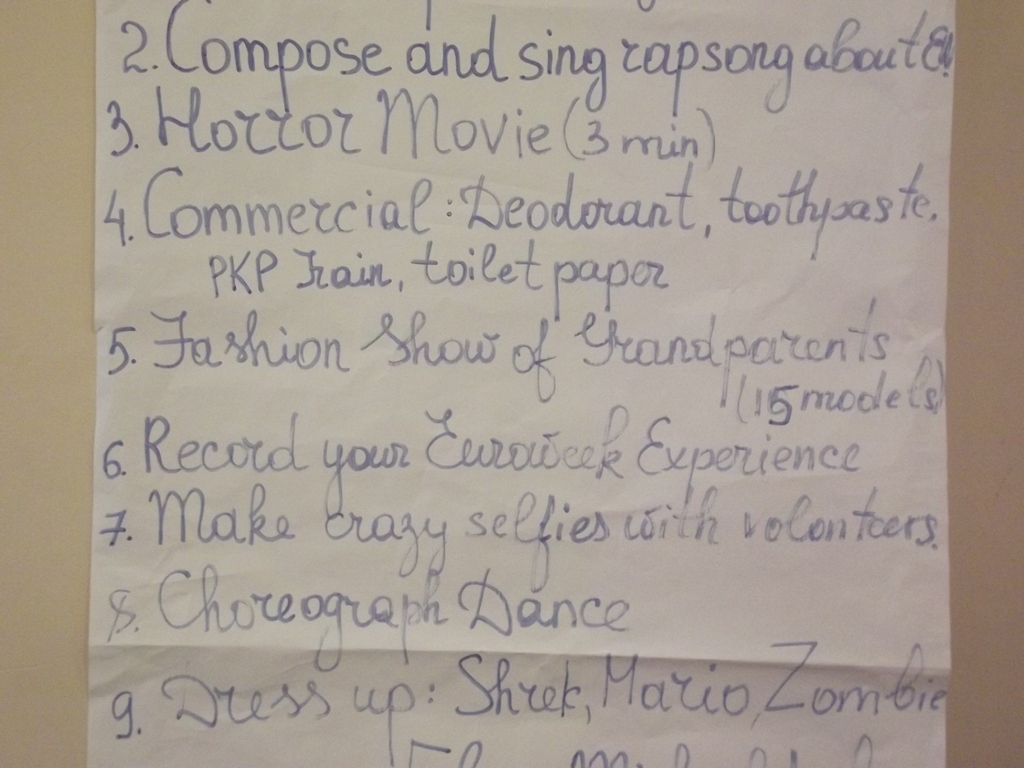 2. Compose and sing rap song about EW
3. Horror Movie (3 min)
4. Commercial: Deodorant, toothpaste,
PKP Train, toilet paper
5. Fashion Show of Grandparents
(15 models)
6. Record your Euroweek Experience
7. Make crazy selfies with volonteers.
8. Choreograph Dance
9. Dress up: Shrek, Mario, Zombie